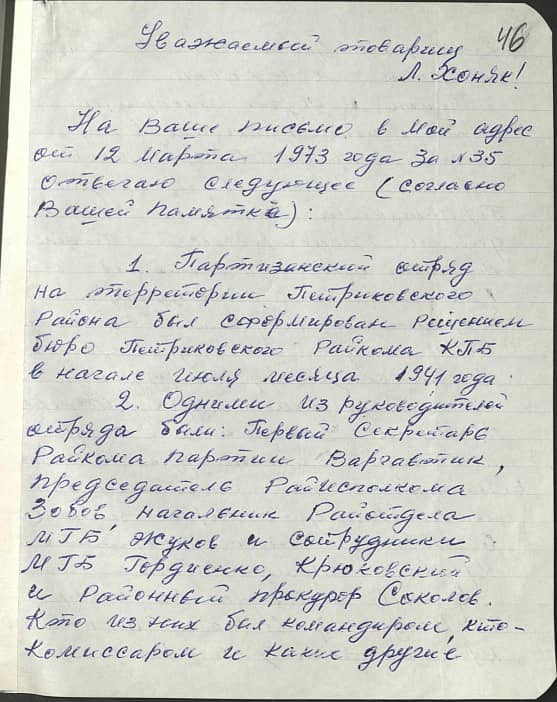 46
Уважаемый товарищ
Л. Хоняк!
На Ваше письмо в мой адрес
от 12 марта 1973 года за №35
отвечаю следующее (согласно
Вашей памятке):
1. Партизанский отряд
на территории Петриковского
Района был сформирован Решением
бюро Петриковского Райкома КПБ
в начале июля месяца 1941 года.
2. Одними из руководителей
отряда были: Первый Секретарь
Райкома партии Варгавтик,
председатель Райисполкома
Зобов, начальник Райотдела
МГБ Жуков и сотрудники
МГБ Гордиенко, Крюковский
и Районный прокурор Соколов.
Кто из них был командиром, кто-
комиссаром и какие другие